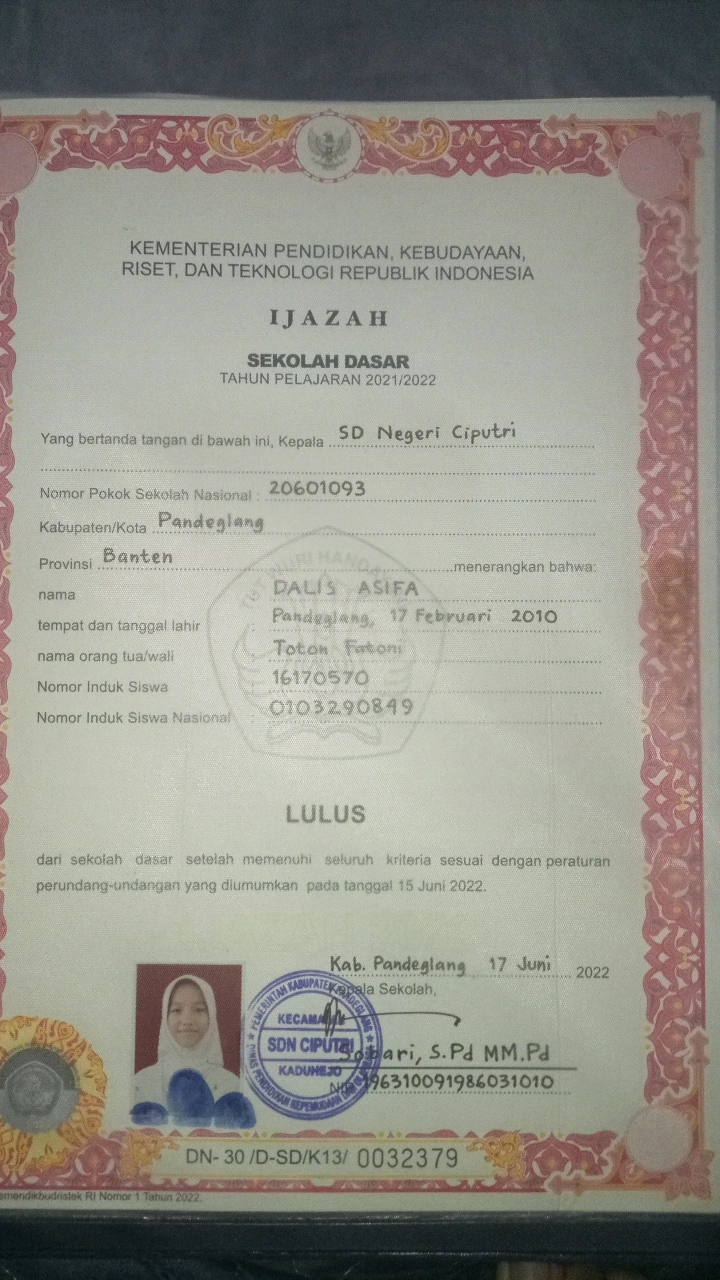 KEMENTERIAN PENDIDIKAN, KEBUDAYAAN,
RISET, DAN TEKNOLOGI REPUBLIK INDONESIA
IJAZAH
SEKOLAH DASAR
TAHUN PELAJARAN 2021/2022
Yang bertanda tangan di bawah ini, Kepala SD Negeri Ciputri
Nomor Pokok Sekolah Nasional : 20601093
Kabupaten/Kota Pandeglang
Provinsi Banten menerangkan bahwa:
nama : DALIS ASIFA
tempat dan tanggal lahir : Pandeglang, 17 Februari 2010
nama orang tua/wali : Toton Fatoni
Nomor Induk Siswa : 16170570
Nomor Induk Siswa Nasional : 0103290849
LULUS
dari sekolah dasar setelah memenuhi seluruh kriteria sesuai dengan peraturan
perundang-undangan yang diumumkan pada tanggal 15 Juni 2022.
Kab. Pandeglang 17 Juni 2022
Kepala Sekolah,
PEMERINTAH KABUPATEN PANDEGLANG
KECAMATAN
SDN CIPUTRI
KADUHEJO
DINAS PENDIDIKAN KEPEMUDAAN DAN
Sobari, S.Pd MM.Pd
NIP 196310091986031010
DN- 30 /D-SD/K13/ 0032379
RI Nomor 1 Tahun 2022.